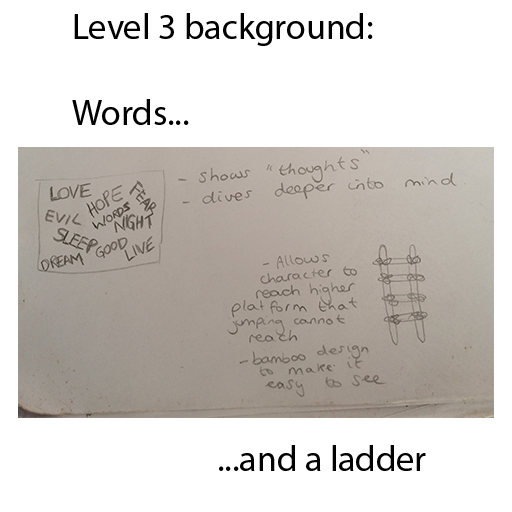 Level 3 background:
Words...
LOVE
HOPE
FEAR
EVIL
WORDS
NIGHT
SLEEP
GOOD
LIVE
DREAM
- shows "thoughts"
- dives deeper into mind.
- Allows
character to
reach higher
platform that
jumping cannot
reach
- bamboo design
to make it
easy to see
...and a ladder